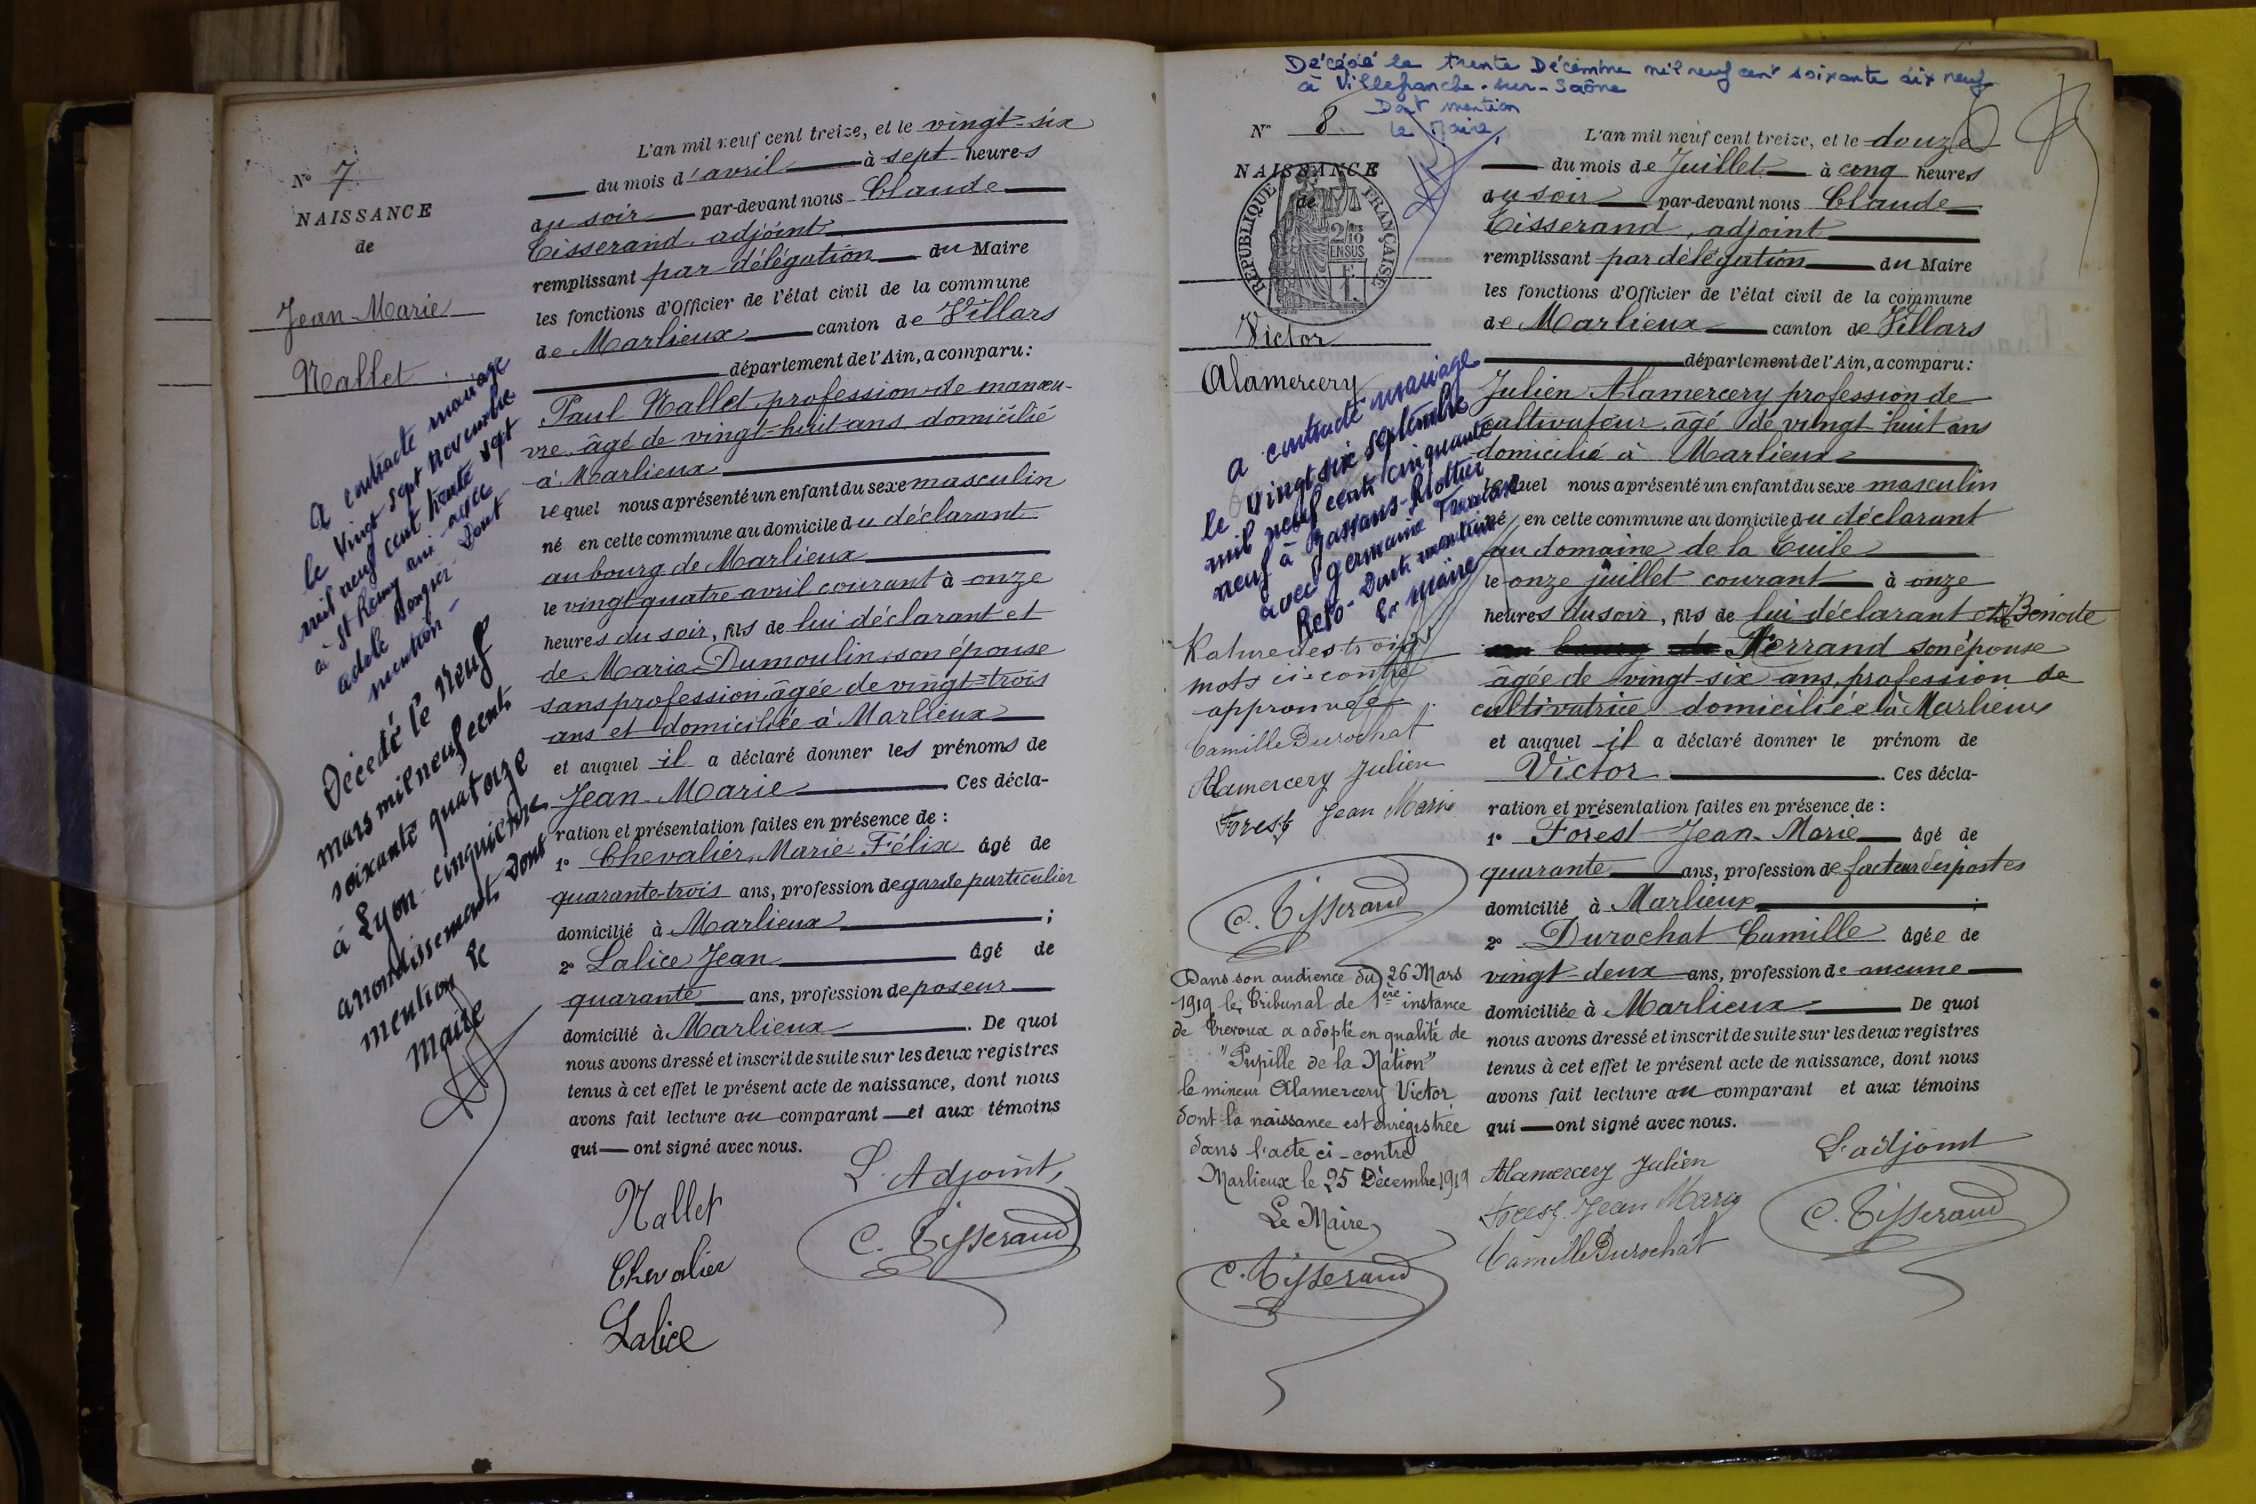 N° 7
NAISSANCE
de
Jean-Marie
Nallet
a contracté mariage
le vingt sept novembre
mil neuf cent trente sept
à St Rémy Ain avec
adèle Dont
mention -
Décédé le neuf
mars mil neuf cent
soixante quatorze
à Lyon - cinquième
arrondissement dont
mention le
Maire
L'an mil neuf cent treize, et le vingt-six
du mois d'avril à sept heures
du soir par-devant nous Claude
Tisserand, adjoint
remplissant par délégation du Maire
les fonctions d'Officier de l'état civil de la commune
de Marlieux canton de Villars
département de l'Ain, a comparu :
Paul Nallet, profession de manœu-
vre âgé de vingt-huit ans domicilié
à Marlieux
lequel nous a présenté un enfant du sexe masculin
né en cette commune au domicile du déclarant
au bourg de Marlieux
le vingt quatre avril courant à onze
heures du soir, fils de lui déclarant et
de Maria Dumoulin, son épouse
sans profession, âgée de vingt-trois
ans et domiciliée à Marlieux
et auquel il a déclaré donner les prénoms de
Jean-Marie . Ces décla-
ration et présentation faites en présence de :
1° Chevalier, Marie Félix âgé de
quarante-trois ans, profession de garde particulier
domicilié à Marlieux ;
2° Lalice Jean âgé de
quarante ans, profession de poseur
domicilié à Marlieux . De quoi
nous avons dressé et inscrit de suite sur les deux registres
tenus à cet effet le présent acte de naissance, dont nous
avons fait lecture au comparant et aux témoins
qui ont signé avec nous.
L'Adjoint,
Nallet
C. Tisserand
Chevalier
Lalice
Décédé le trente Décembre mil neuf cent soixante dix neuf
à Villefranche-sur-Saône
Dont mention
le Maire,
N° 8
NAISSANCE
de
REPUBLIQUE FRANÇAISE
2/10
EN SUS
1 F.
Victor
Alamercery
a contracté mariage
le vingt six septembre
mil neuf cent cinquante
neuf à Jassans-Riottier
avec germaine
Dont mention
Le Maire
Rature des trois
mots ci-contre
approuvée
Camille Durochat
Alamercery Julien
Forest Jean Marie
C. Tisserand
Dans son audience du 26 Mars
1919 le Tribunal de 1ère instance
de Trevoux a adopté en qualité de
"Pupille de la Nation"
le mineur Alamercery Victor
dont la naissance est enregistrée
dans l'acte ci-contre
Marlieux le 25 Décembre 1919
Le Maire
C. Tisserand
L'an mil neuf cent treize, et le douze
du mois de Juillet à cinq heures
du soir par-devant nous Claude
Tisserand, adjoint
remplissant par délégation du Maire
les fonctions d'Officier de l'état civil de la commune
de Marlieux canton de Villars
département de l'Ain, a comparu :
Julien Alamercery profession de
cultivateur âgé de vingt huit ans
domicilié à Marlieux
lequel nous a présenté un enfant du sexe masculin
né en cette commune au domicile du déclarant
au domaine de la Tuile
le onze juillet courant à onze
heures du soir, fils de lui déclarant et de Benoite
Ferrand son épouse
âgée de vingt-six ans, profession de
cultivatrice domiciliée à Marlieux
et auquel il a déclaré donner le prénom de
Victor . Ces décla-
ration et présentation faites en présence de :
1° Forest Jean-Marie âgé de
quarante ans, profession de facteur des postes
domicilié à Marlieux ;
2° Durochat Camille âgée de
vingt-deux ans, profession de aucune
domiciliée à Marlieux De quoi
nous avons dressé et inscrit de suite sur les deux registres
tenus à cet effet le présent acte de naissance, dont nous
avons fait lecture au comparant et aux témoins
qui ont signé avec nous.
L'adjoint
Alamercery Julien
Forest Jean Marie
C. Tisserand
Camille Durochat